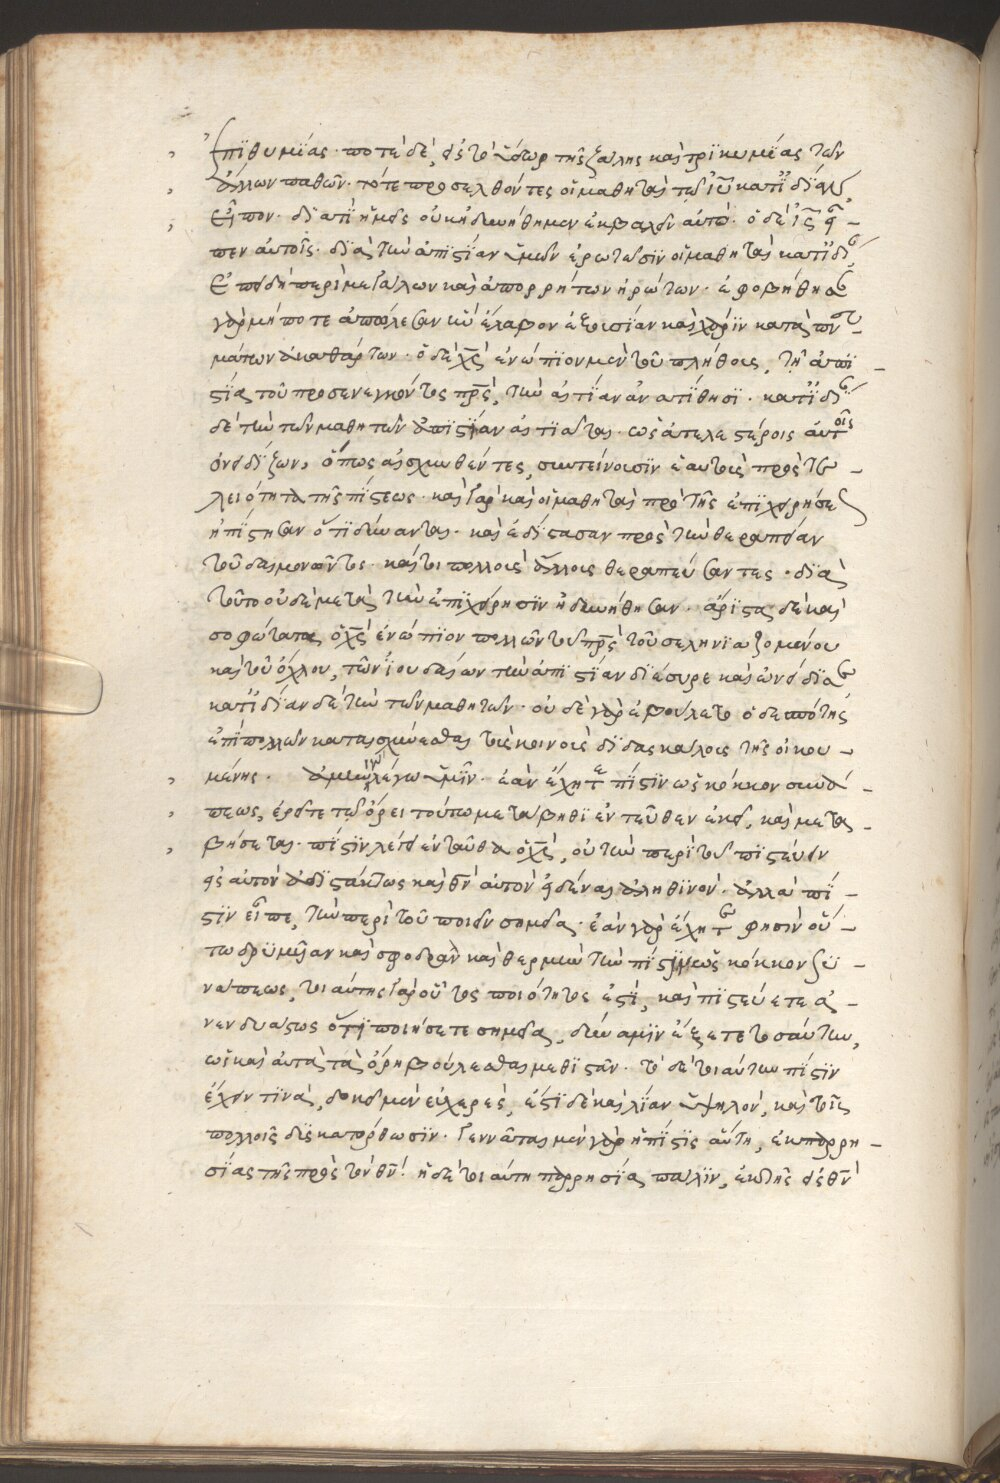 ἐπιθυμίας· ποτὲ δὲ, εἰς τὸ ὕδωρ τῆς ζάλης καὶ τρικυμίας τῶν
ἄλλων παθῶν· τότε προσελθόντες οἱ μαθηταὶ τῷ ἰῦ κατ' ἰδίαν
εἶπον· διατί ἡμεῖς οὐκ ἠδυνήθημεν ἐκβαλεῖν αὐτό· ὁ δὲ ἰς εἶ-
πεν αὐτοῖς· διὰ τὴν ἀπιστίαν ὑμῶν ἐρωτῶσιν οἱ μαθηταὶ κατ' ἰδίαν
ἐπειδὴ περὶ μεγάλων καὶ ἀπορρήτων ἠρώτων· ἐφοβήθησαν
γὰρ μήποτε ἀπώλεσαν ἣν ἔλαβον ἐξουσίαν καὶ χάριν κατὰ πνευ-
μάτων ἀκαθάρτων· ὁ δὲ χς ἐνώπιον μὲν τοῦ πλήθους, τῇ ἀπι-
στία τοῦ προσενεγκόντος πρς, τὴν αἰτίαν ἀνατίθησι· κατ' ἰδίαν
δὲ τὴν τῶν μαθητῶν ἀπιστίαν αἰτιᾶται· ὡς ἀτελεστέροις αὐτοῖς
ὀνειδίζων, ὅπως αἰσχυνθέντες, συντείνουσιν ἑαυτοὺς πρὸς τε-
λειότητα τῆς πίστεως· καὶ γὰρ καὶ οἱ μαθηταὶ πρὸ τῆς ἐπιχειρήσεως
ἠπίστησαν ὅτι δύνανται· καὶ ἐδίστασαν πρὸς τὴν θεραπείαν
τοῦ δαιμονῶντος· καίτοι πολλοὺς ἄλλους θεραπεύσαντες· διὰ
τοῦτο οὐδὲ μετὰ τὴν ἐπιχείρησιν ἠδυνήθησαν· ἄριστα δὲ καὶ
σοφώτατα ὁ χς ἐνώπιον πολλῶν τοῦ πρς τοῦ σεληνιαζομένου
καὶ τοῦ ὄχλου, τῶν ἰουδαίων τὴν ἀπιστίαν διέσυρε καὶ ὠνείδισε
κατ' ἰδίαν δὲ τὴν τῶν μαθητῶν· οὐδὲ γὰρ ἐβούλετο ὁ δεσπότης
ἐπὶ πολλῶν καταισχύνεσθαι τοὺς κοινοὺς διδασκάλους τῆς οἰκου-
μένης. ἀμὴν λέγω ὑμῖν· ἐὰν ἔχητε πίστιν ὡς κόκκον σινά-
πεως, ἐρεῖτε τῷ ὄρει τούτω μετάβηθι ἐντεῦθεν ἐκεῖ, καὶ μετα-
βήσεται· πίστιν λέγει ἐνταῦθα ὁ χς, οὐ τὴν περὶ τοῦ πιστεύειν
εἰς αὐτὸν ἀδιστάκτως καὶ θν αὐτὸν εἰδέναι ἀληθινόν· ἀλλὰ πί-
στιν εἶπε, τὴν περὶ τοῦ ποιεῖν σημεῖα· ἐὰν γὰρ ἔχητε φησὶν οὕ-
τω δριμεῖαν καὶ σφοδρὰν καὶ θερμὴν τὴν πίστιν ὡς κόκκον σι-
νάπεως, τοιαύτης γὰρ οὗτος ποιότητος ἐστὶ, καὶ πιστεύετε ἄ-
νευ δυάσεως ὅτι ποιήσετε σημεῖα, δύναμιν ἕξετε τοσαύτην,
ὡς καὶ αὐτὰ τὰ ὄρη βούλεσθαι μεθιστᾶν· τὸ δὲ τοιαύτην πίστιν
ἔχειν τινὰ, δοκεῖ μὲν εὐχερὲς, ἔστι δὲ καὶ λίαν ὑψηλὸν, καὶ τοῖς
πολλοῖς δυσκατόρθωσιν· γεννᾶται μὲν γὰρ ἡ πίστις αὕτη, ἐκ παρρη-
σίας τῆς πρὸς τὸν θν· ἡ δὲ τοιαύτη παρρησία πάλιν, ἐκ τῆς εἰς θν